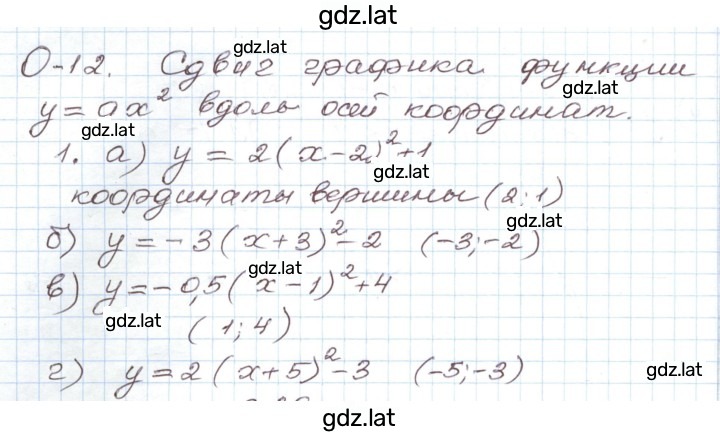 gdz.lat
О-12. Сдвиг графика функции
gdz.lat
gdz.lat
y = ax² вдоль осей координат.
gdz.lat
1. а) y = 2(x-2)²+1
gdz.lat
координаты вершины (2;1)
gdz.lat
б) y = -3(x+3)²-2 (-3;-2)
gdz.lat
в) y = -0,5(x-1)²+4
gdz.lat
(1;4)
г) y = 2(x+5)²-3 (-5;-3)
gdz.lat
gdz.lat